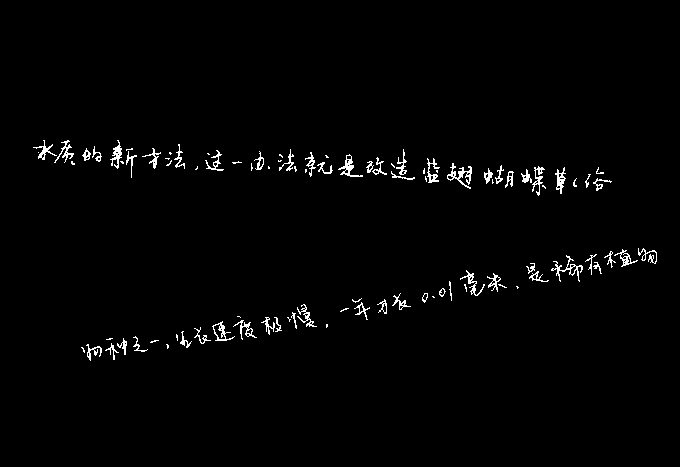 水质的新方法,这一办法就是改造蓝翅蝴蝶草(俗
物种之一,生长速度极慢,一年才长0.01毫米,是承命有植物